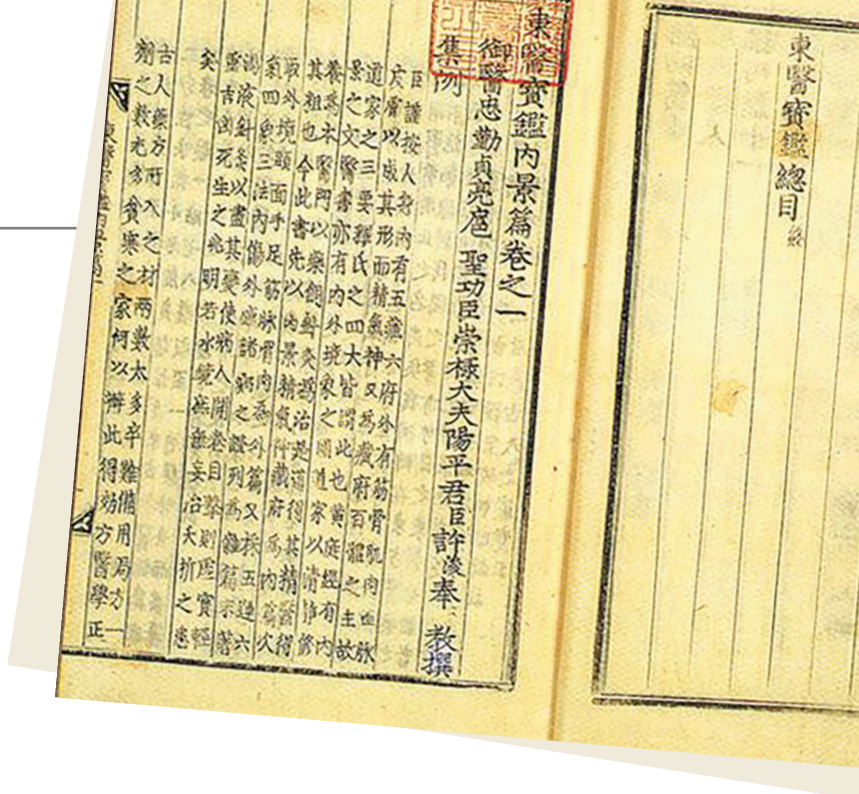 東醫寶鑑總目終
東醫寶鑑內景篇卷之一
御醫忠勤貞亮扈 聖功臣崇祿大夫陽平君臣許浚奉 敎撰
集例
臣謹按人身內有五藏六府外有筋骨肌肉血脉
皮膚以成其形而精氣神又爲藏府百體之主故
道家之三要釋氏之四大皆謂此也黃庭經有內
景之文醫書亦有內外境象之圖道家以清靜修
養爲本醫門以藥餌鍼灸爲治是道得其精醫得
其粗也今此書先以內景精氣神藏府爲內篇次
取外境頭面手足筋脉骨肉爲外篇又採五運六
氣四象三法內傷外感諸病之證列爲雜篇末著
湯液鍼灸以盡其變使病人開卷目擊則虛實輕
重吉凶死生之兆明若水鏡庶無妄治夭折之患
矣
古人藥方所入之材兩數太多卒難備用局方一
劑之數尤多貧寒之家何以辦此得効方醫學正